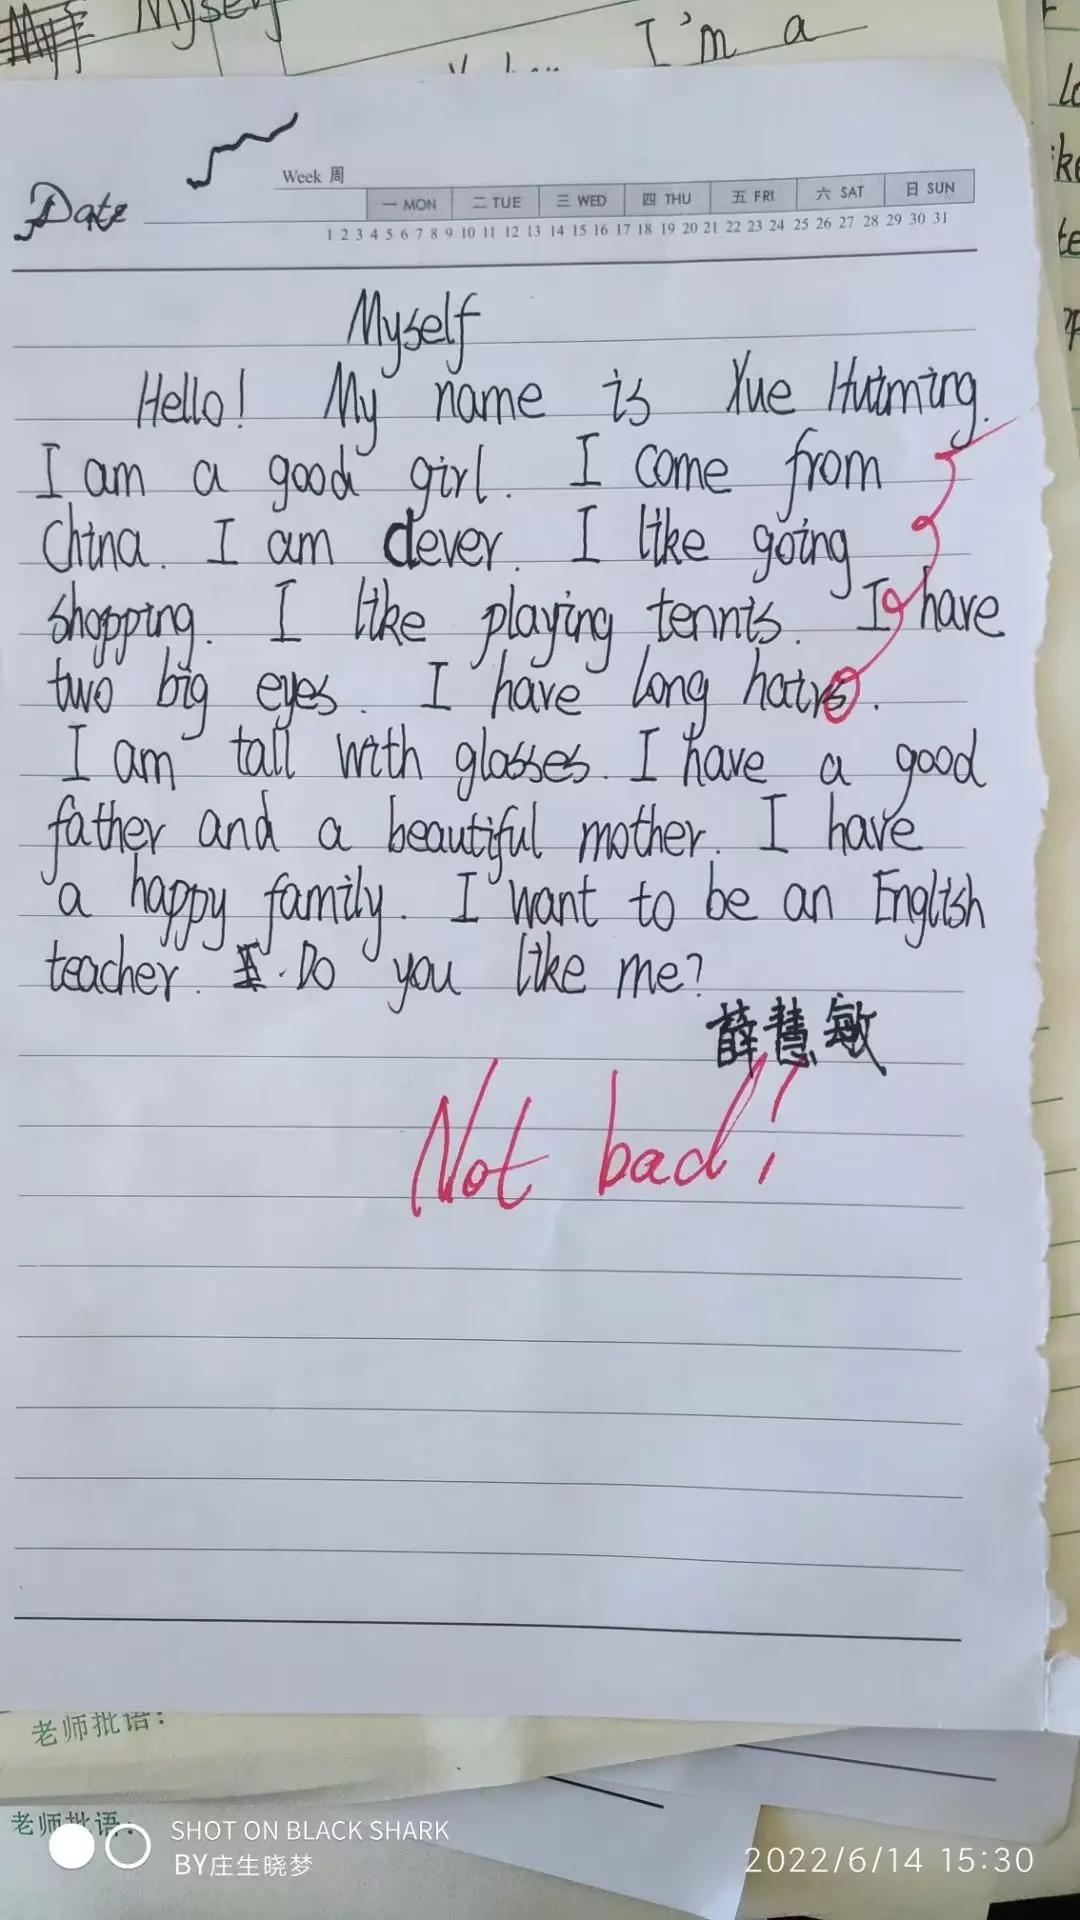 Myself
I'm a
Date
Week 周
一 MON 二 TUE 三 WED 四 THU 五 FRI 六 SAT 日 SUN
1 2 3 4 5 6 7 8 9 10 11 12 13 14 15 16 17 18 19 20 21 22 23 24 25 26 27 28 29 30 31
Myself
Hello! My name is Xue Huiming.
I am a good girl. I come from
China. I am clever. I like going
shopping. I like playing tennis. I have
two big eyes. I have long hairs.
I am tall with glasses. I have a good
father and a beautiful mother. I have
a happy family. I want to be an English
teacher. Do you like me?
薛慧敏
Not bad!
老师批语:
老师批语:
SHOT ON BLACK SHARK
BY庄生晓梦
2022/6/14 15:30